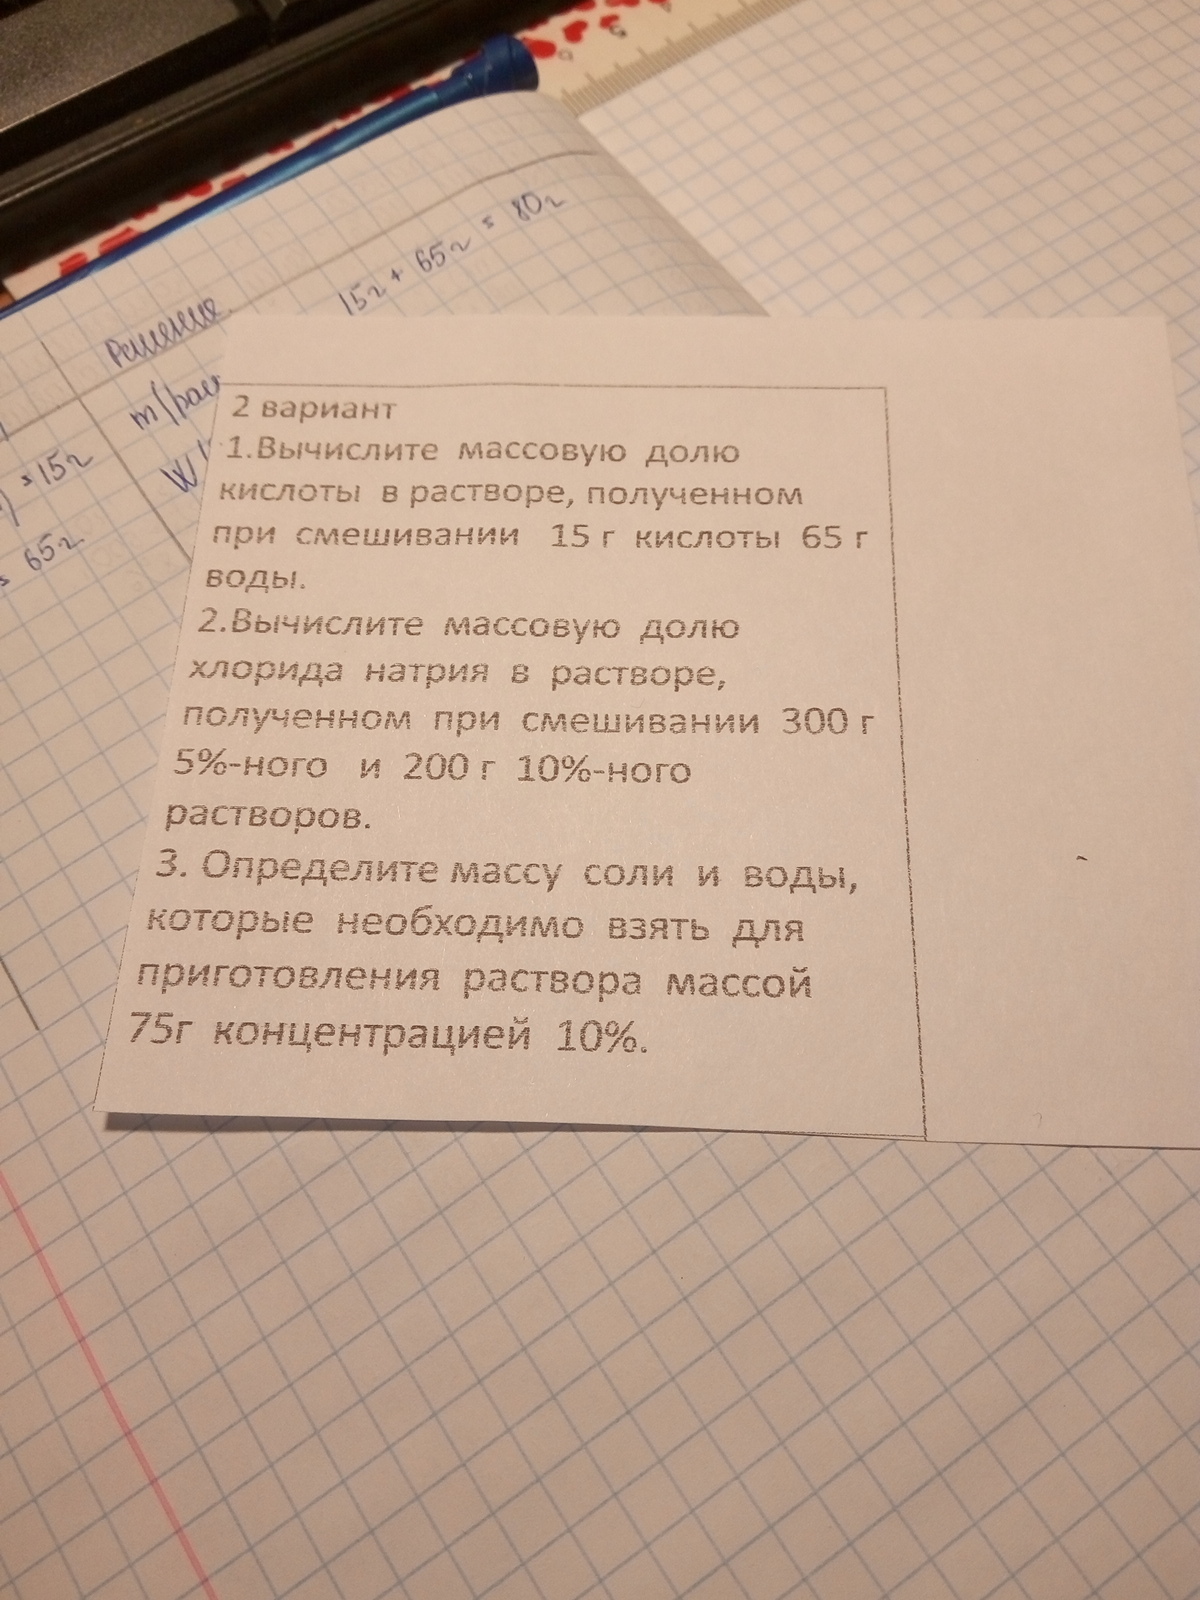 15г + 65г = 80г
Решение
=15г
= 65г
2 вариант
1.Вычислите массовую долю
кислоты в растворе, полученном
при смешивании 15 г кислоты 65 г
воды.
2.Вычислите массовую долю
хлорида натрия в растворе,
полученном при смешивании 300 г
5%-ного и 200 г 10%-ного
растворов.
3. Определите массу соли и воды,
которые необходимо взять для
приготовления раствора массой
75г концентрацией 10%.